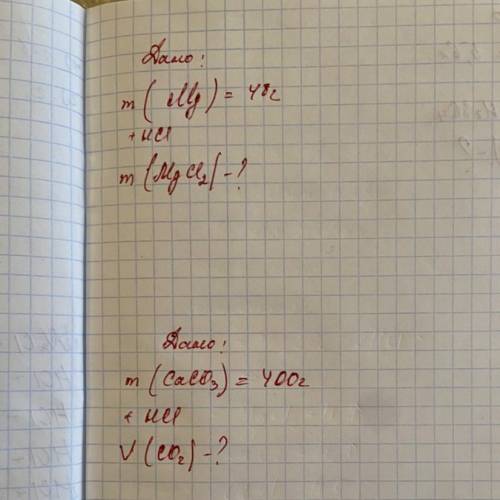 Дано:
m (Mg) = 48г
+ HCl
m (MgCl₂) - ?
Дано:
m (CaCO₃) = 400г
+ HCl
V (CO₂) - ?